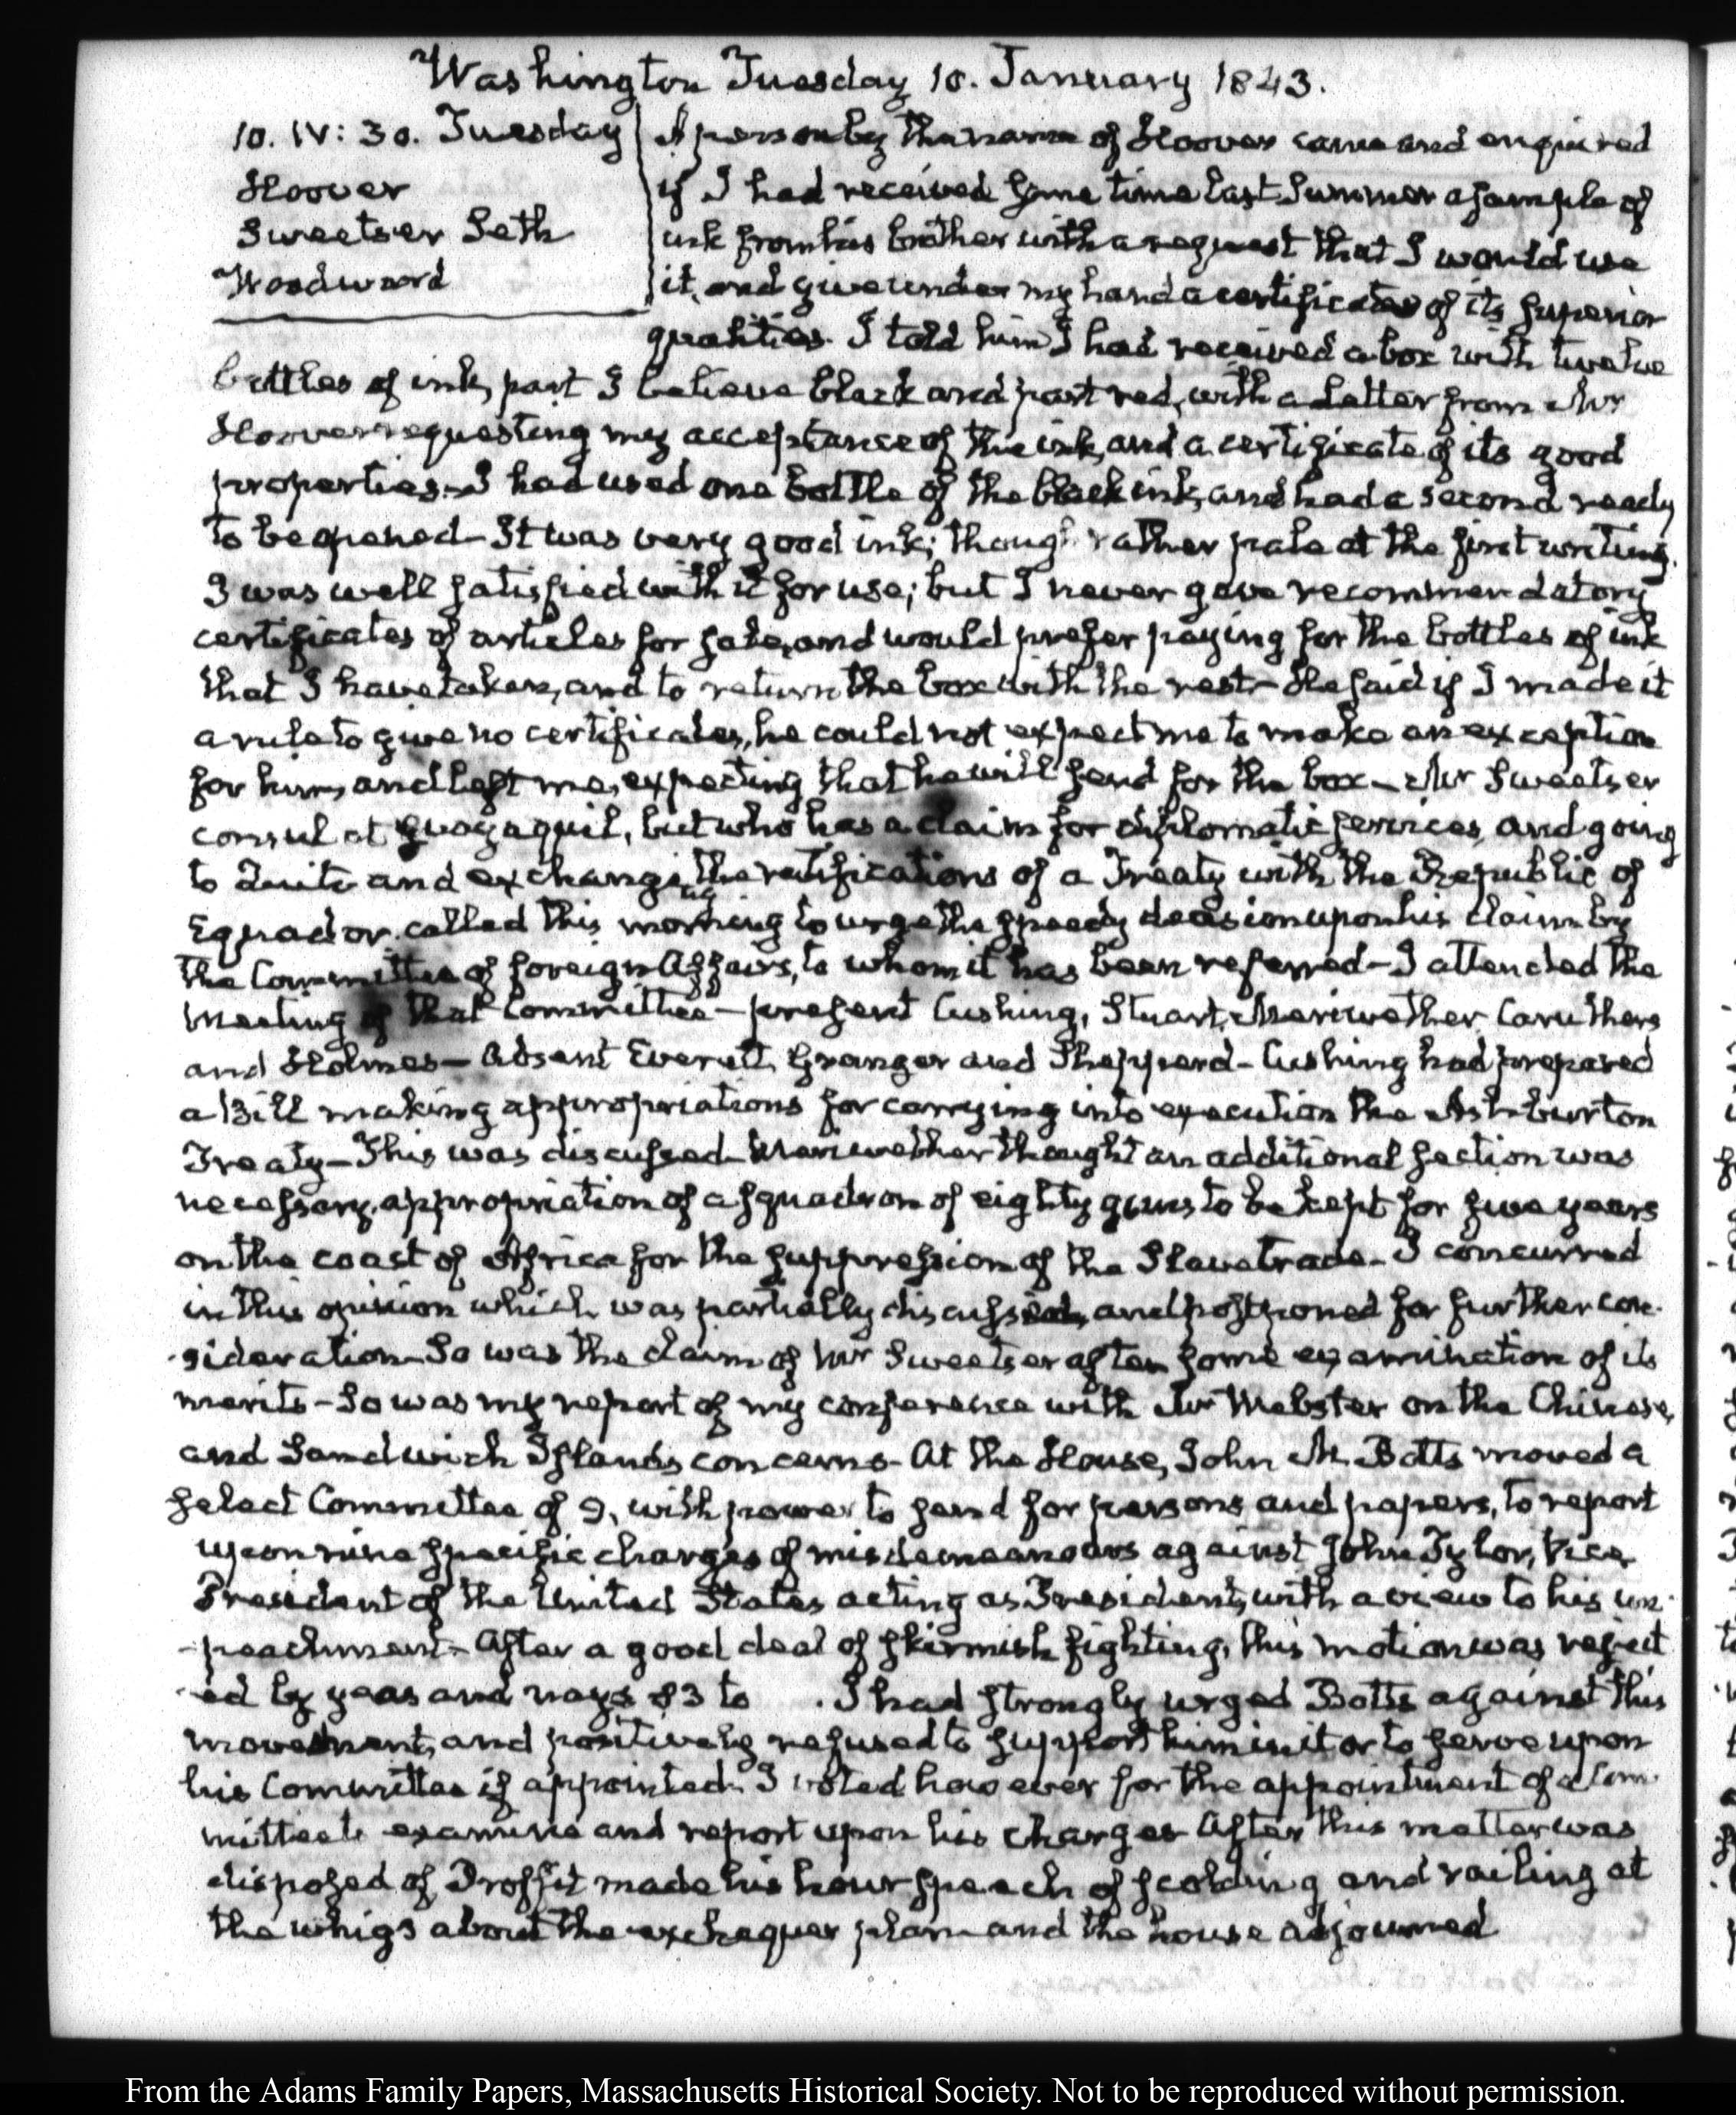 Washington Tuesday 10. January 1843.
10. IV: 30. Tuesday
Hoover
Sweetser Seth
Woodward
A person by the name of Hoover came and enquired
if I had received some time last Summer a sample of
ink from his brother with a request that I would use
it, and give under my hand a certificate of its superior
qualities. I told him I had received a box with twelve
bottles of ink, part I believe black and part red, with a Letter from Mr
Hoover requesting my acceptance of the ink, and a certificate of its good
properties. I had used one bottle of the black ink, and had a second ready
to be opened— It was very good ink; though rather pale at the first writing.
I was well satisfied with it for use; but I never gave recommendatory
certificates of articles for sale, and would prefer paying for the bottles of ink
that I have taken, and to return the box with the rest— He said if I made it
a rule to give no certificates, he could not expect me to make an exception
for him, and left me, expecting that he will send for the box— Mr Sweetser
consul at Guayaquil, but who has a claim for diplomatic services, and going
to Quito and exchanging the ratifications of a Treaty with the Republic of
Equador called this morning to urge the speedy decision upon his claim by
the Committee of foreign Affairs, to whom it has been referred— I attended the
meeting of that Committee— present Cushing, Stuart, Meriwether Caruthers
and Holmes— Absent Everett, Granger and Shepperd— Cushing had prepared
a Bill making appropriations for carrying into execution the Ashburton
Treaty— This was discussed— Meriwether thought an additional section was
necessary, appropriation of a squadron of eighty guns to be kept for five years
on the coast of Africa for the suppression of the Slave trade— I concurred
in this opinion which was partially discussed, and postponed for further con-
-sideration— So was the claim of Mr Sweetser after some examination of its
merits— So was my report of my conference with Mr Webster on the Chinese,
and Sandwich Islands concerns— At the House, John M. Botts moved a
select Committee of 9, with power to send for persons and papers, to report
upon nine specific charges of misdemeanours against John Tyler, Vice
President of the United States acting as President, with a view to his im-
-peachment— After a good deal of skirmish fighting, this motion was reject
-ed by yeas and nays 83 to . I had strongly urged Botts against this
movement, and positively refused to support him in it or to serve upon
his Committee if appointed. I voted however for the appointment of a Com-
mittee to examine and report upon his charges After this matter was
disposed of Proffit made his hour speech of scolding and railing at
the whigs about the exchequer plan and the house adjourned
From the Adams Family Papers, Massachusetts Historical Society. Not to be reproduced without permission.